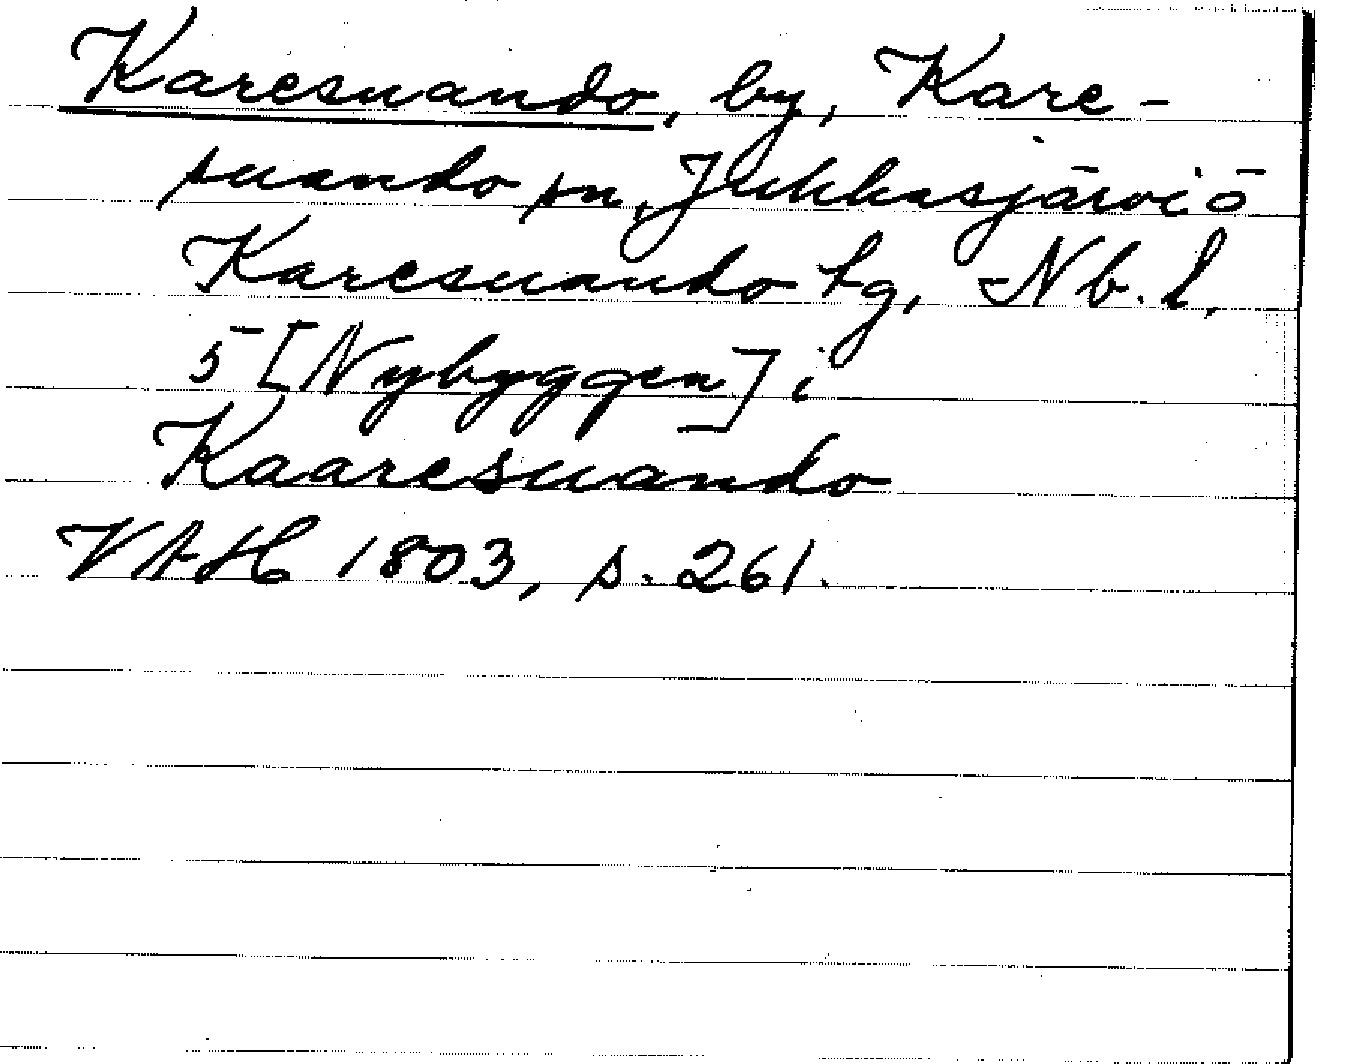 Karesuando, by, Kare-
suando sn, Jukkasjärvi o
Karesuando tg, Nb. l.
5 [Nybyggen] i
Kaaresuando
VAH 1803, s. 261.